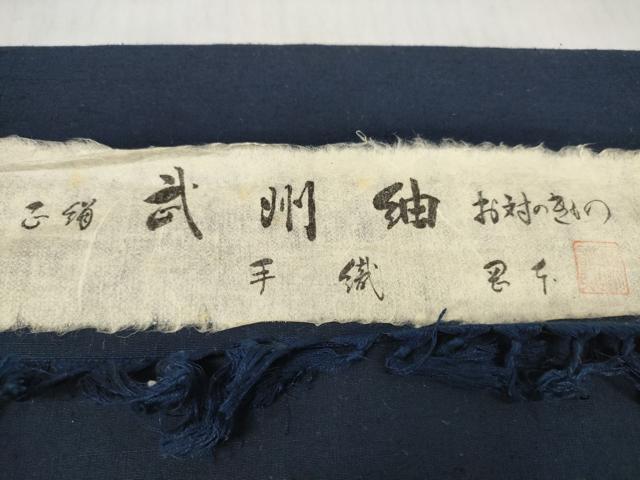 正絹 武州紬 お対のきもの
手織 岡本